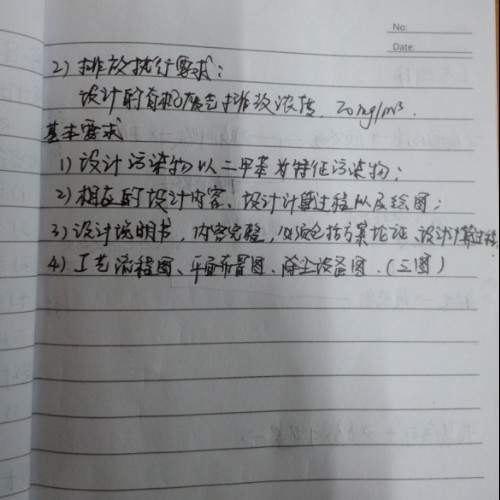 No:
Date:
2）排放执行要求：
设计的有机废气排放浓度，20mg/m³.
基本要求
1）设计污染物以二甲苯为特征污染物；
2）相应的设计内容、设计计算过程以及绘图；
3）设计说明书，内容完整，必须包括方案论证、设计计算过程
4）工艺流程图、平面布置图、除尘设备图.（三图）